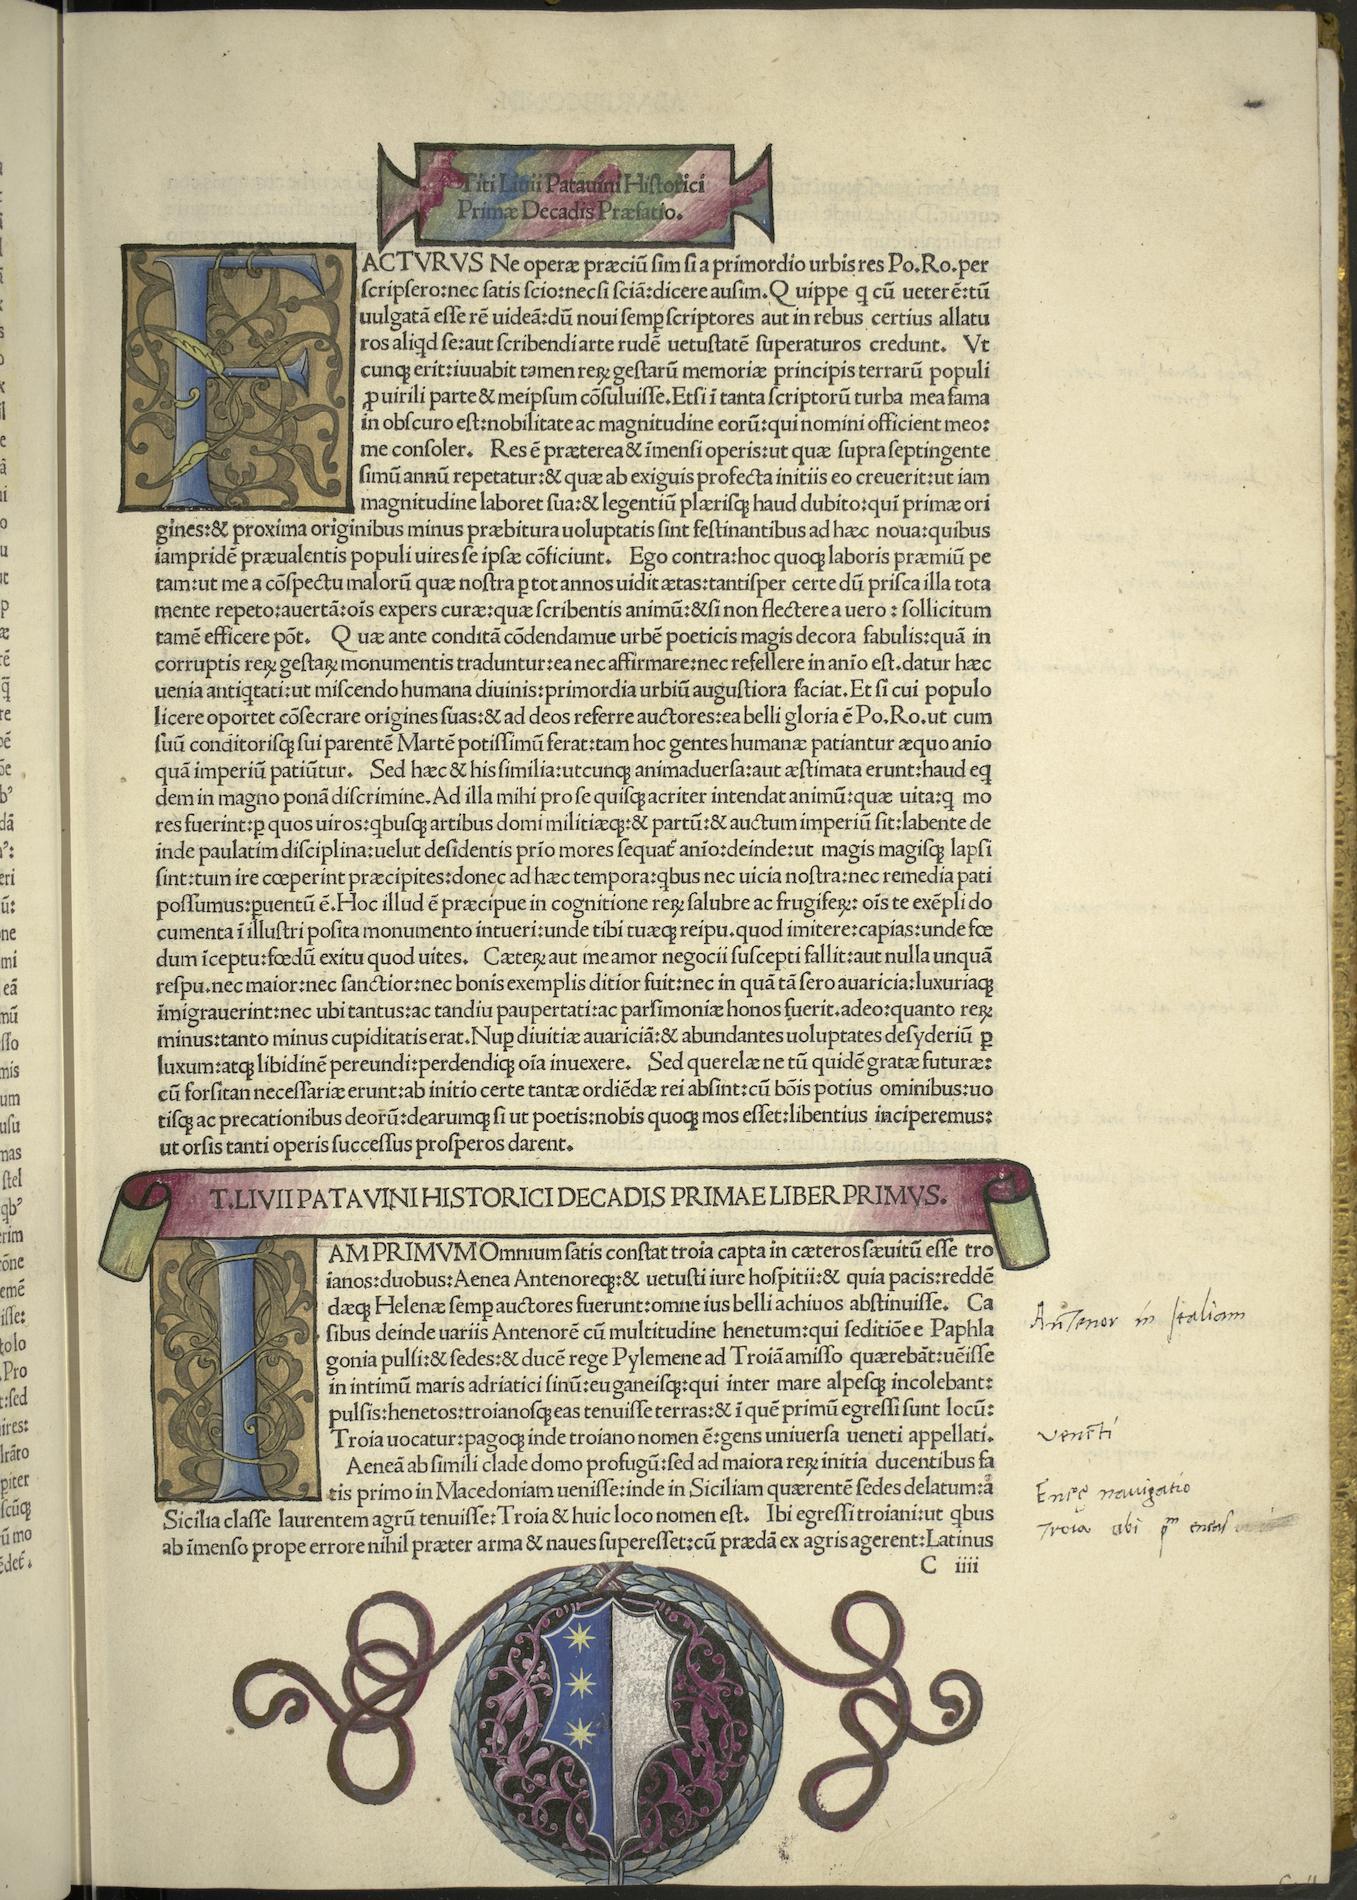 Titi Liuii Patauini Historici
Primæ Decadis Præfatio.
FACTVRVS Ne operæ præciū sim si a primordio urbis res Po.Ro.per
scripsero:nec satis scio:nec si sciā:dicere ausim.Quippe q cū ueterē:tū
uulgatā esse rē uideā:dū noui semꝑ scriptores aut in rebus certius allatu
ros aliqd se:aut scribendi arte rudē uetustatē superaturos credunt. Vt
cunqꝫ erit:iuuabit tamen reꝝ gestarū memoriæ principis terrarū populi
ꝓ uirili parte & meipsum cōsuluisse.Etsi ī tanta scriptorū turba mea fama
in obscuro est:nobilitate ac magnitudine eorū:qui nomini officient meo:
me consoler. Res ē præterea & īmensi operis:ut quæ supra septingente
simū annū repetatur:& quæ ab exiguis profecta initiis eo creuerit:ut iam
magnitudine laboret sua:& legentiū plærisqꝫ haud dubito:quī primæ ori
gines:& proxima originibus minus præbitura uoluptatis sint festinantibus ad hæc noua:quibus
iampridē præualentis populi uires se ipsæ cōficiunt. Ego contra:hoc quoqꝫ laboris præmiū pe
tam:ut me a cōspectu malorū quæ nostra ꝑ tot annos uidit ætas:tantisper certe dū prisca illa tota
mente repeto:auertā:oīs expers curæ:quæ scribentis animū:& si non flectere a uero : sollicitum
tamē efficere pōt. Quæ ante conditā cōdendamue urbē poeticis magis decora fabulis:quā in
corruptis reꝝ gestaꝝ monumentis traduntur:ea nec affirmare:nec refellere in anīo est.datur hæc
uenia antiqtati:ut miscendo humana diuinis:primordia urbiū augustiora faciat.Et si cui populo
licere oportet cōsecrare origines suas:& ad deos referre auctores:ea belli gloria ē Po.Ro.ut cum
suū conditorisqꝫ sui parentē Martē potissimū ferat:tam hoc gentes humanæ patiantur æquo anīo
quā imperiū patiūtur. Sed hæc & his similia:utcunqꝫ animaduersa:aut æstimata erunt:haud eq
dem in magno ponā discrimine.Ad illa mihi pro se quisqꝫ acriter intendat animū:quæ uita:q mo
res fuerint:ꝑ quos uiros:qbusqꝫ artibus domi militiæqꝫ:& partū:& auctum imperiū sit:labente de
inde paulatim disciplina:uelut desidentis prīo mores sequat̄ anīo:deinde:ut magis magisqꝫ lapsi
sint:tum ire cœperint præcipites:donec ad hæc tempora:qbus nec uicia nostra:nec remedia pati
possumus:ꝑuentū ē.Hoc illud ē præcipue in cognitione reꝝ salubre ac frugiferꝝ: oīs te exēpli do
cumenta ī illustri posita monumento intueri:unde tibi tuæqꝫ reipu.quod imitere:capias:unde fœ
dum īceptu:fœdū exitu quod uites. Cæteꝝ aut me amor negocii suscepti fallit:aut nulla unquā
respu.nec maior:nec sanctior:nec bonis exemplis ditior fuit:nec in quā tā sero auaricia:luxuriaqꝫ
īmigrauerint:nec ubi tantus:ac tandiu paupertati:ac parsimoniæ honos fuerit.adeo:quanto reꝝ
minus:tanto minus cupiditatis erat.Nuꝑ diuitiæ auariciā:& abundantes uoluptates desyderiū ꝑ
luxum:atqꝫ libidinē pereundi:perdendiqꝫ oīa inuexere. Sed querelæ ne tū quidē gratæ futuræ:
cū forsitan necessariæ erunt:ab initio certe tantæ ordiēdæ rei absint:cū bōis potius ominibus:uo
tisqꝫ ac precationibus deorū:dearumqꝫ si ut poetis:nobis quoqꝫ mos esset:libentius inciperemus:
ut orsis tanti operis successus prosperos darent.
T.LIVII PATAVINI HISTORICI DECADIS PRIMAE LIBER PRIMVS.
IAM PRIMVM Omnium satis constat troia capta in cæteros sæuitū esse tro
ianos:duobus:Aenea Antenoreqꝫ:& uetusti iure hospitii:& quia pacis:reddē
dæqꝫ Helenæ semꝑ auctores fuerunt:omne ius belli achiuos abstinuisse. Ca
sibus deinde uariis Antenorē cū multitudine henetum:qui seditiōe e Paphla
gonia pulsi:& sedes:& ducē rege Pylemene ad Troiā amisso quærebāt:uēisse
in intimū maris adriatici sinū:euganeisqꝫ:qui inter mare alpesqꝫ incolebant:
pulsis:henetos:troianosqꝫ eas tenuisse terras:& ī quē primū egressi sunt locū:
Troia uocatur:pagoqꝫ inde troiano nomen ē:gens uniuersa ueneti appellati.
Aeneā ab simili clade domo profugū:sed ad maiora reꝝ initia ducentibus fa
tis primo in Macedoniam uenisse:inde in Siciliam quærentē sedes delatum:a
Sicilia classe laurentem agrū tenuisse:Troia & huic loco nomen est. Ibi egressi troiani:ut qbus
ab īmenso prope errore nihil præter arma & naues superesset:cū prædā ex agris agerent:Latinus
C iiii
Antenor in Italiam
Veneti
Eneę nauigatio
Troia ubi pm eneas